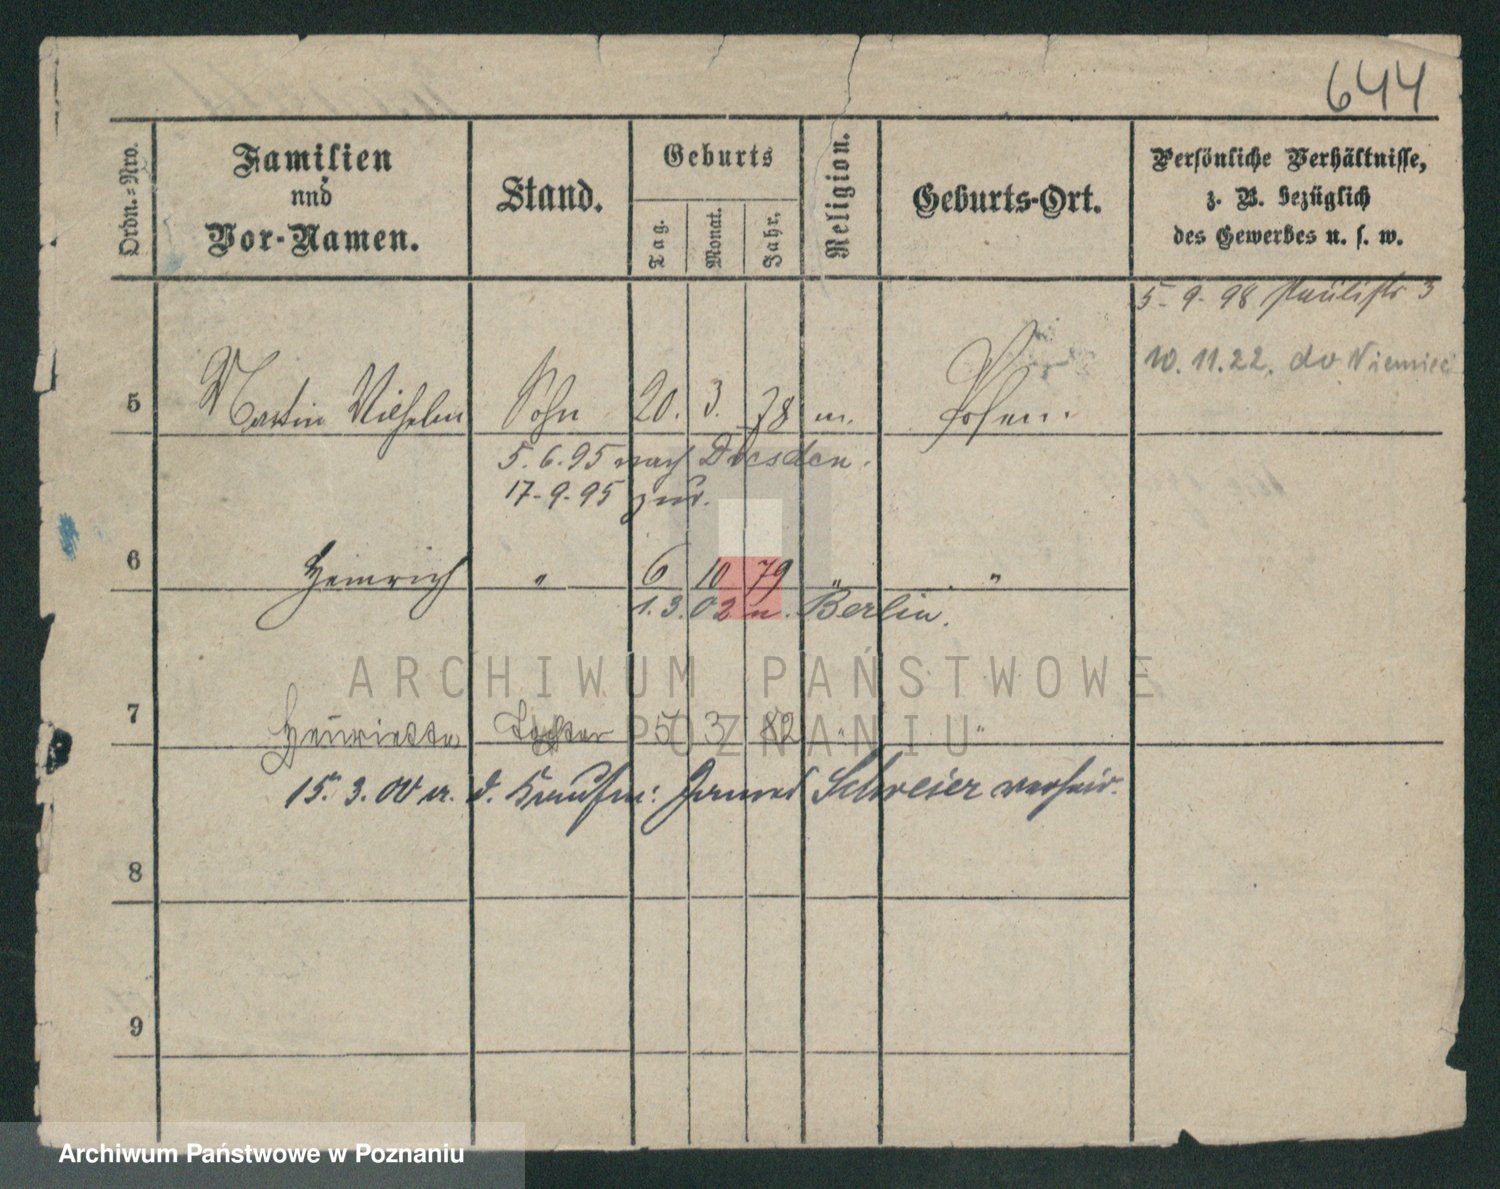 644
Ordn.=Nro.
Familien
und
Vor-Namen.
Stand.
Geburts
Tag.
Monat.
Jahr.
Religion.
Geburts-Ort.
Persönliche Verhältnisse,
z. B. bezüglich
des Gewerbes u. s. w.
5-9-98 Paulistr 3
10.11.22. do Niemiec
5 Martin Wilhelm Sohn 20. 3. 78 m. Posen.
5.6.95 nach Dresden.
17-9-95 zur.
6 Heinrich " 6 10 79 " "
1.3.02 n. Berlin.
7 Henriette Tochter 5 3 82 " "
15.3.00 m. d. Kaufm: Schreier verheir.
8
9
ARCHIWUM PAŃSTWOWE
W POZNANIU
Archiwum Państwowe w Poznaniu